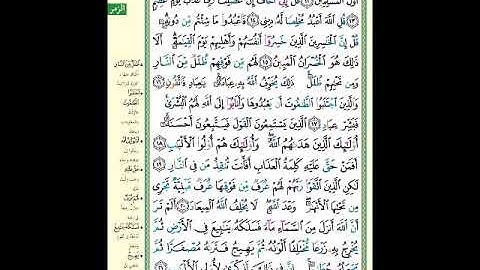 الزمر
أَوَّلَ الْمُسْلِمِينَ ١٢ قُلْ إِنِّي أَخَافُ إِنْ عَصَيْتُ رَبِّي عَذَابَ يَوْمٍ عَظِيمٍ
١٣ قُلِ اللَّهَ أَعْبُدُ مُخْلِصًا لَّهُ دِينِي ١٤ فَاعْبُدُوا مَا شِئْتُم مِّن دُونِهِ
قُلْ إِنَّ الْخَاسِرِينَ الَّذِينَ خَسِرُوا أَنفُسَهُمْ وَأَهْلِيهِمْ يَوْمَ الْقِيَامَةِ أَلَا
ذَٰلِكَ هُوَ الْخُسْرَانُ الْمُبِينُ ١٥ لَهُم مِّن فَوْقِهِمْ ظُلَلٌ مِّنَ النَّارِ
وَمِن تَحْتِهِمْ ظُلَلٌ ذَٰلِكَ يُخَوِّفُ اللَّهُ بِهِ عِبَادَهُ يَا عِبَادِ فَاتَّقُونِ ١٦
وَالَّذِينَ اجْتَنَبُوا الطَّاغُوتَ أَن يَعْبُدُوهَا وَأَنَابُوا إِلَى اللَّهِ لَهُمُ الْبُشْرَىٰ
فَبَشِّرْ عِبَادِ ١٧ الَّذِينَ يَسْتَمِعُونَ الْقَوْلَ فَيَتَّبِعُونَ أَحْسَنَهُ
أُولَٰئِكَ الَّذِينَ هَدَاهُمُ اللَّهُ وَأُولَٰئِكَ هُمْ أُولُو الْأَلْبَابِ ١٨
أَفَمَنْ حَقَّ عَلَيْهِ كَلِمَةُ الْعَذَابِ أَفَأَنتَ تُنقِذُ مَن فِي النَّارِ ١٩
لَٰكِنِ الَّذِينَ اتَّقَوْا رَبَّهُمْ لَهُمْ غُرَفٌ مِّن فَوْقِهَا غُرَفٌ مَّبْنِيَّةٌ تَجْرِي
مِن تَحْتِهَا الْأَنْهَارُ وَعْدَ اللَّهِ لَا يُخْلِفُ اللَّهُ الْمِيعَادَ ٢٠ أَلَمْ تَرَ
أَنَّ اللَّهَ أَنزَلَ مِنَ السَّمَاءِ مَاءً فَسَلَكَهُ يَنَابِيعَ فِي الْأَرْضِ ثُمَّ
يُخْرِجُ بِهِ زَرْعًا مُّخْتَلِفًا أَلْوَانُهُ ثُمَّ يَهِيجُ فَتَرَاهُ مُصْفَرًّا ثُمَّ
يَجْعَلُهُ حُطَامًا إِنَّ فِي ذَٰلِكَ لَذِكْرَىٰ لِأُولِي الْأَلْبَابِ ٢١